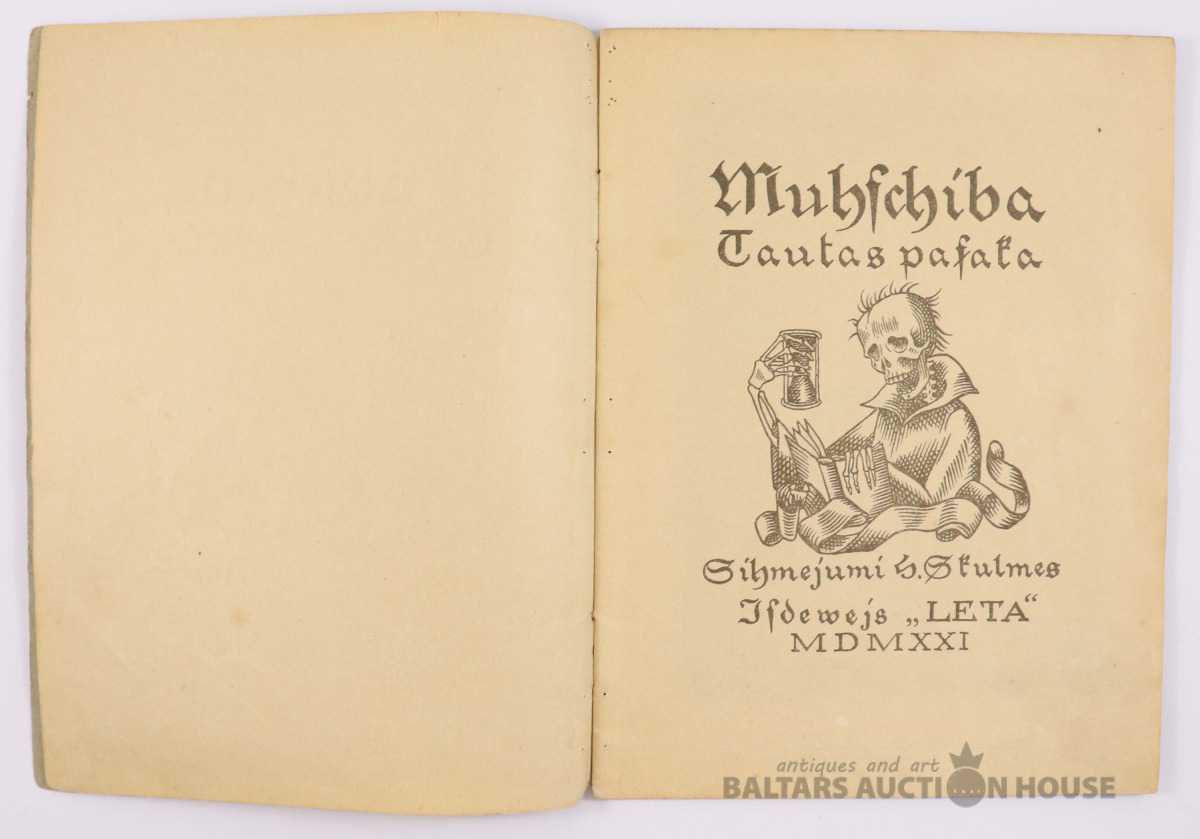 Muhſchiba
Tautas paſaka
Sihmejumi H. Skulmes
Iſdewejs „LETA“
MDMXXI
antiques and art
BALTARS AUCTION HOUSE